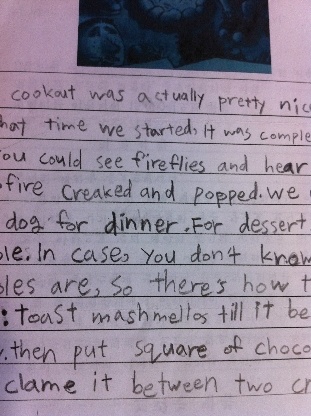 cookout was actually pretty nic
hat time we started. It was comple
You could see fireflies and hear
fire creaked and popped. We
dog for dinner. For dessert
le. In case, you don't know
les are, So there's how t
: Toast mashmellos till it be
. then put square of choco
clame it between two cr